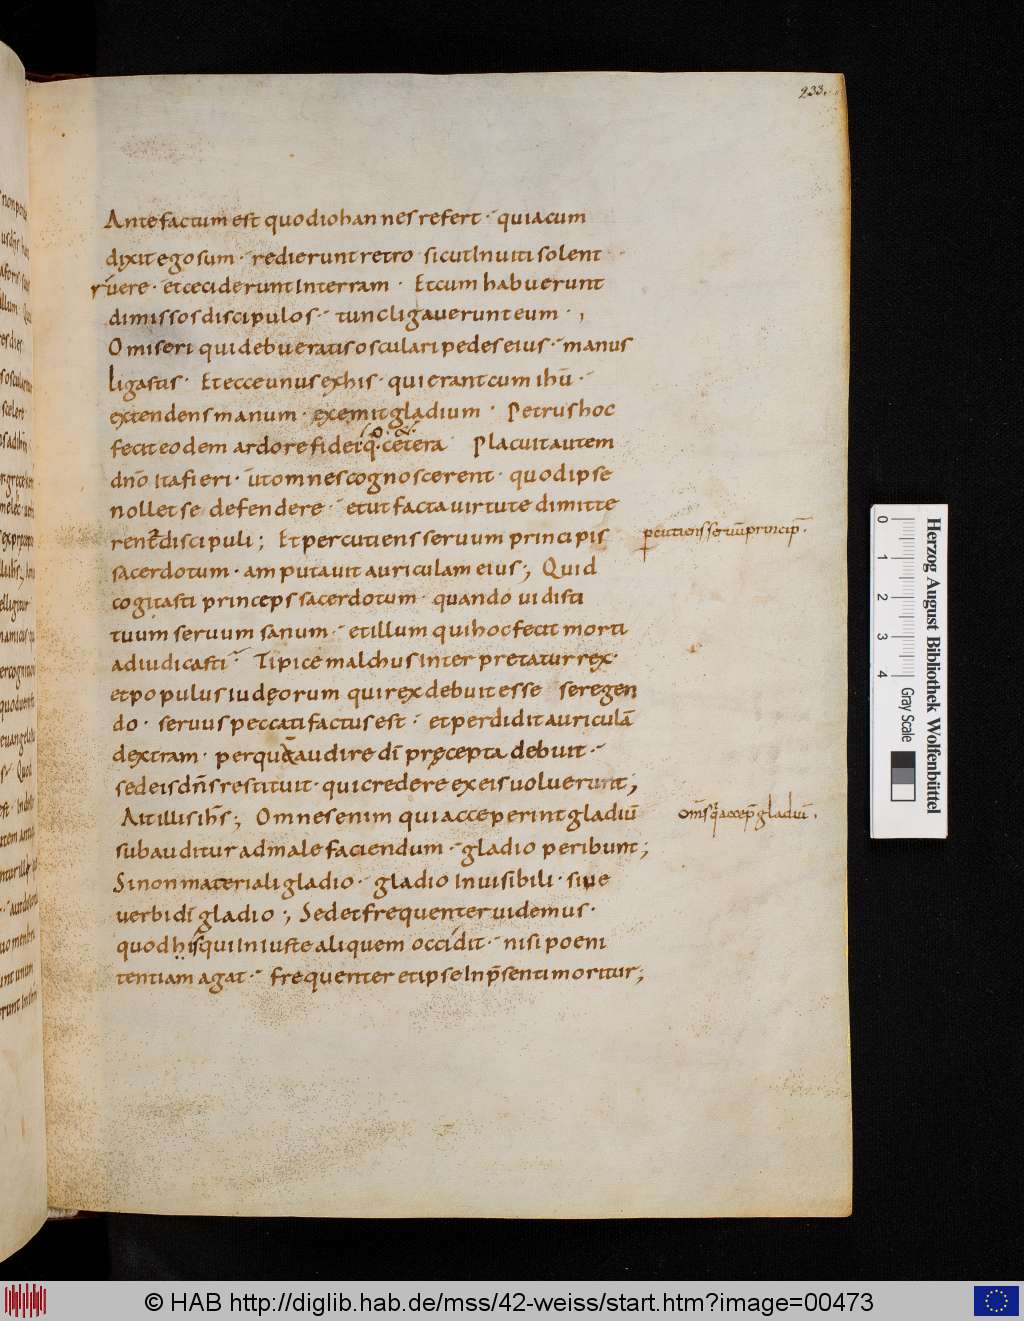 233.
Ante factum est quod iohannes refert · quia cum
dixit ego sum · redierunt retro sicut Inuiti solent
ruere · et ceciderunt Interram · Et cum habuerunt
dimissos discipulos · tunc ligauerunt eum · ,
O miseri qui debueratis osculari pedes eius · manus
ligastis · Et ecce unus ex his · qui erant cum ihū ·
extendens manum · exemit gladium · Petrus hoc
fecit eodem ardore fidei q̄o · & cetera Placuit autem
dn̄o ita fieri · ut omnes cognoscerent · quod ipse
nollet se defendere · et ut facta uirtute dimitte
rent discipuli ; Et percutiens seruum principis
percutiens seruū princip̄ ·
sacerdotum · amputauit auriculam eius ·, Quid
cogitasti princeps sacerdotum · quando uidisti
tuum seruum sanum · et illum qui hoc fecit morti
adiudicasti · Tipice malchus inter pretatur rex ·
et populus iudęorum qui rex debuit esse se regen
do · seruus peccati factus est · et perdidit auriculā
dextram · per quā audire dī pręcepta debuit ·
sed eis dn̄s restituit · qui credere ex eis uoluerunt ;
Ait illis ihs̄ ·, Omnes enim qui acceperint gladiū
om̄s q̄ accep̄ gladiū .
subauditur ad male faciendum · gladio peribunt ;
Si non materiali gladio · gladio Inuisibili · siue
uerbi dī gladio ·, Sed et frequenter uidemus ·
quod his qui Iniuste aliquem occidit · nisi poeni
tentiam agat · frequenter et ipse In p̄senti moritur ;
Herzog August Bibliothek Wolfenbüttel
Gray Scale
0 1 2 3 4
© HAB http://diglib.hab.de/mss/42-weiss/start.htm?image=00473